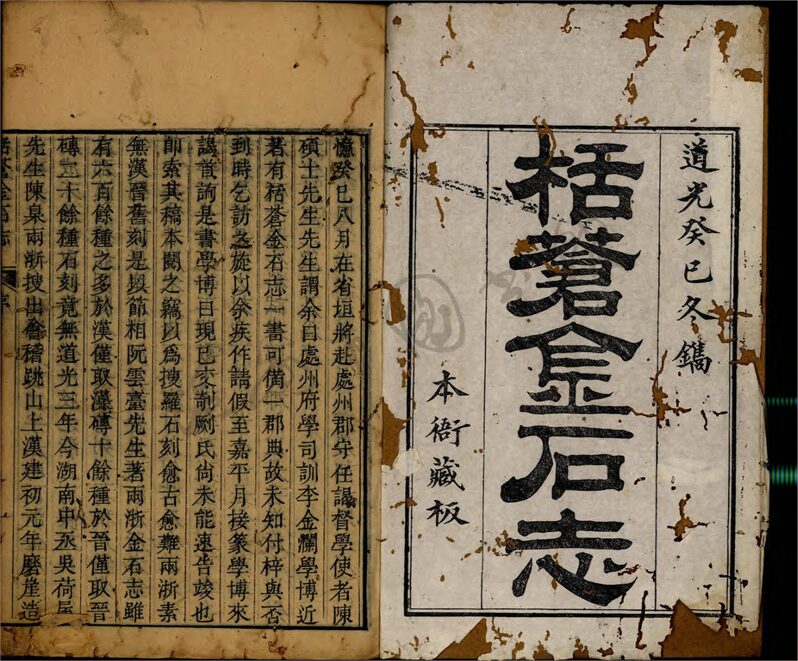 道光癸巳冬鐫
栝蒼金石志
本衙藏板
憶癸巳八月在省垣將赴處州郡守任謁督學使者陳
碩士先生先生謂余曰處州府學司訓李金瀾學博近
著有栝蒼金石志一書可備一郡典故未知付梓與否
到時乞訪之旋以余疾作請假至嘉平月接篆學博來
謁首詢是書學博曰現已交剞劂氏尚未能速告竣也
即索其稿本閱之竊以爲搜羅石刻愈古愈難兩浙素
無漢晉舊刻是以節相阮雲臺先生著兩浙金石志雖
有六百餘種之多於漢僅取漢磚十餘種於晉僅取晉
磚二十餘種石刻竟無道光三年今湖南中丞吳荷屋
先生陳臬兩浙搜出會稽跳山上漢建初元年磨崖造
栝蒼金石志 序